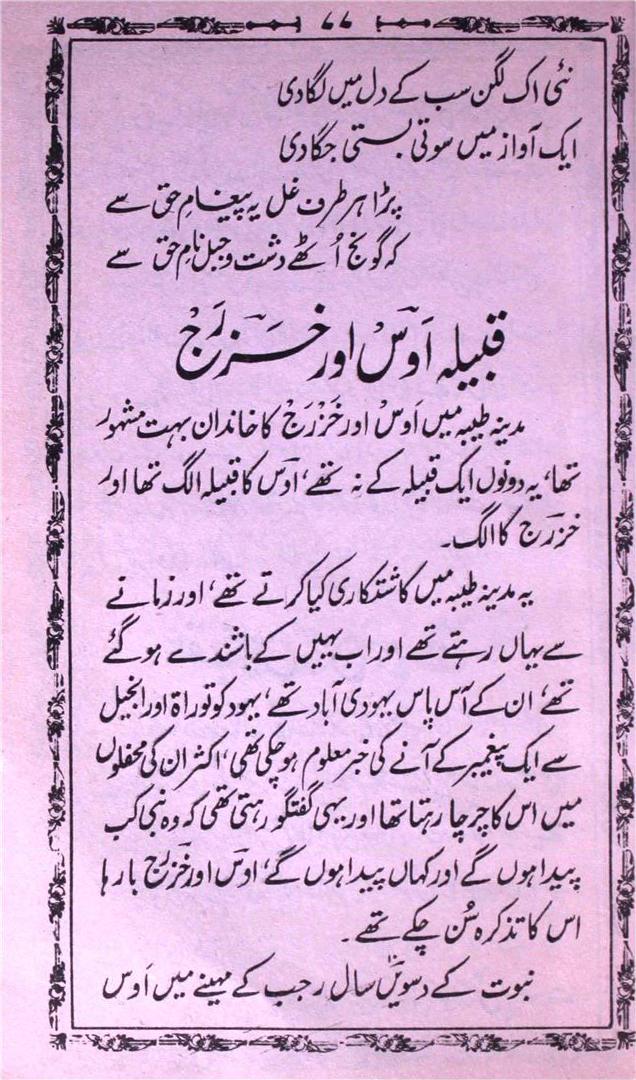 ۷۷
نئی اک لگن سب کے دل میں لگا دی
ایک آواز میں سوتی بستی جگا دی
پڑا ہر طرف غل یہ پیغامِ حق سے
کہ گونج اُٹھے دشت و جبل نامِ حق سے
قبیلہ اَوسْ اور خَزرَجْ
مدینہ طیبہ میں اَوسْ اور خَزْرَجْ کا خاندان بہت مشہور
تھا، یہ دونوں ایک قبیلہ کے نہ تھے، اوس کا قبیلہ الگ تھا اور
خزرج کا الگ۔
یہ مدینہ طیبہ میں کاشتکاری کیا کرتے تھے، اور زمانے
سے یہاں رہتے تھے اور اب یہیں کے باشندے ہو گئے
تھے، ان کے آس پاس یہودی آباد تھے، یہود کو توراۃ اور انجیل
سے ایک پیغمبر کے آنے کی خبر معلوم ہو چکی تھی، اکثر ان کی محفلوں
میں اس کا چرچا رہتا تھا اور یہی گفتگو رہتی تھی کہ وہ نبی کب
پیدا ہوں گے اور کہاں پیدا ہوں گے، اوس اور خزرج بارہا
اس کا تذکرہ سُن چکے تھے۔
نبوت کے دسویں سال رجب کے مہینے میں اَوس